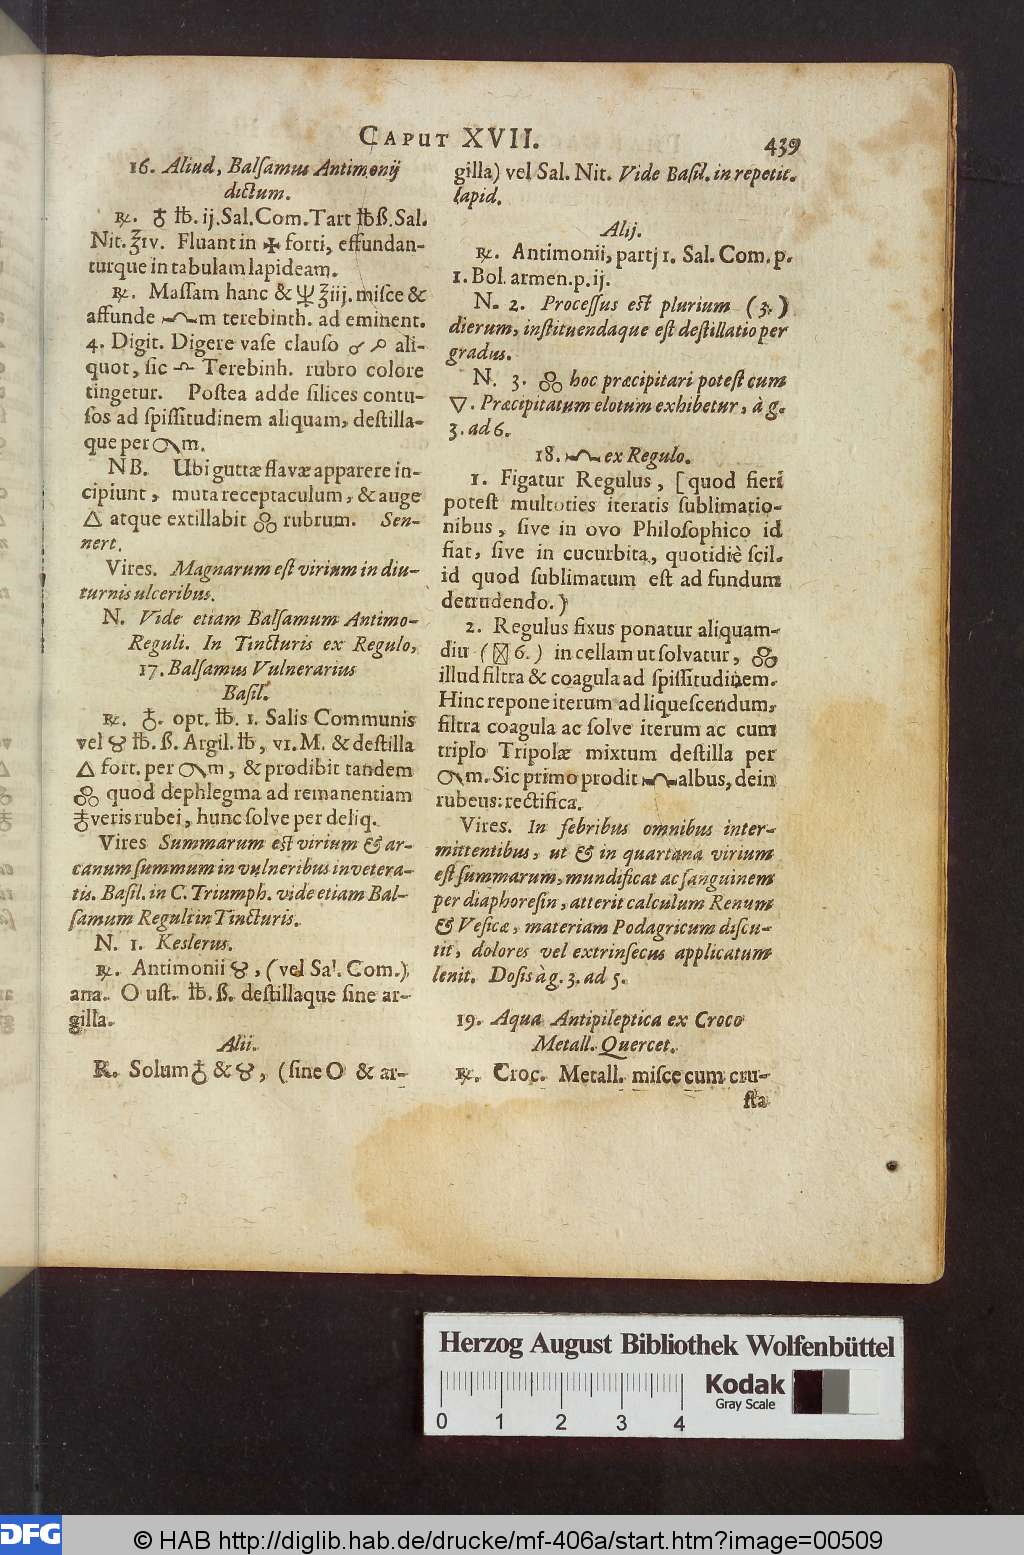 CAPUT XVII. 439
16. Aliud, Balſamus Antimonij
dictum.
℞. ♁ ℔. ij. Sal. Com. Tart ℔ß. Sal.
Nit. ℥iv. Fluant in ✠ forti, effundan-
turque in tabulam lapideam.
℞. Maſſam hanc & ℥iij. miſce &
affunde m terebinth. ad eminent.
4. Digit. Digere vaſe clauſo ali-
quot, ſic Terebinh. rubro colore
tingetur. Poſtea adde ſilices contu-
ſos ad ſpiſſitudinem aliquam, deſtilla-
que per m.
NB. Ubi guttæ flavæ apparere in-
cipiunt, muta receptaculum, & auge
△ atque extillabit rubrum. Sen-
nert.
Vires. Magnarum eſt virium in diu-
turnis ulceribus.
N. Vide etiam Balſamum Antimo-
Reguli. In Tincturis ex Regulo,
17. Balſamus Vulnerarius
Baſil.
℞. ♁. opt. ℔. 1. Salis Communis
vel ℔. ß. Argil. ℔, vi. M. & deſtilla
△ fort. per m, & prodibit tandem
quod dephlegma ad remanentiam
♁veris rubei, hunc ſolve per deliq.
Vires Summarum eſt virium & ar-
canum ſummum in vulneribus invetera-
tis. Baſil. in C. Triumph. vide etiam Bal-
ſamum Reguli in Tincturis.
N. 1. Keslerus.
℞. Antimonii , (vel Sal. Com.)
ana. O uſt. ℔. ß. deſtillaque ſine ar-
gilla.
Alii.
R. Solum ♁ & , (ſine O & ar-
gilla) vel Sal. Nit. Vide Baſil. in repetit.
lapid.
Alij.
℞. Antimonii, partj 1. Sal. Com. p.
1. Bol. armen. p. ij.
N. 2. Proceſſus eſt plurium (3.)
dierum, inſtituendaque eſt deſtillatio per
gradus.
N. 3. hoc præcipitari poteſt cum
▽. Præcipitatum elotum exhibetur, à g.
3. ad 6.
18. ex Regulo.
1. Figatur Regulus, [quod fieri
poteſt multoties iteratis ſublimatio-
nibus, ſive in ovo Philoſophico id
fiat, ſive in cucurbita, quotidiè ſcil.
id quod ſublimatum eſt ad fundum
detrudendo.)
2. Regulus fixus ponatur aliquam-
diu ( 6.) in cellam ut ſolvatur,
illud filtra & coagula ad ſpiſſitudinem.
Hinc repone iterum ad liqueſcendum,
filtra coagula ac ſolve iterum ac cum
triplo Tripolæ mixtum deſtilla per
m. Sic primo prodit albus, dein
rubeus: rectifica.
Vires. In febribus omnibus inter-
mittentibus, ut & in quartana virium
eſt ſummarum, mundificat ac ſanguinem
per diaphoreſin, atterit calculum Renum
& Veſicæ, materiam Podagricum diſcu-
tit, dolores vel extrinſecus applicatum
lenit. Doſis à g. 3. ad 5.
19. Aqua Antipileptica ex Croco
Metall. Quercet.
℞. Croc. Metall. miſce cum cru-
ſta
Herzog August Bibliothek Wolfenbüttel
Kodak
Gray Scale
0 1 2 3 4
DFG
© HAB http://diglib.hab.de/drucke/mf-406a/start.htm?image=00509